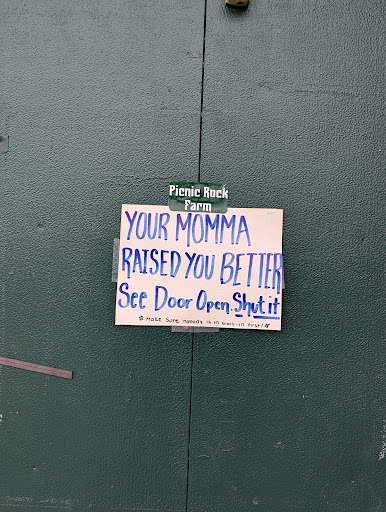 Picnic Rock
Farm
YOUR MOMMA
RAISED YOU BETTER
See Door Open. Shut it
Make sure nobody is in walk-in first!